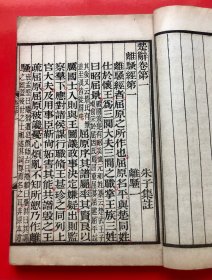 楚辭卷第一
朱子集註
離騷經第一
離騷一
離騷經者屈原之所作也屈原名平與楚同姓
仕於懷王爲三閭大夫三閭之職掌王族三姓
曰昭屈景
屈原序其譜屬率其賢良以
厲國士入則與王圖議政事決定嫌疑出則監
察羣下應對諸侯謀行職修王甚珍之同列上
官大夫及用事臣靳尚妬害其能共譖毀之王
疏屈原屈原被讒憂心煩亂不知所愬乃作離
騷